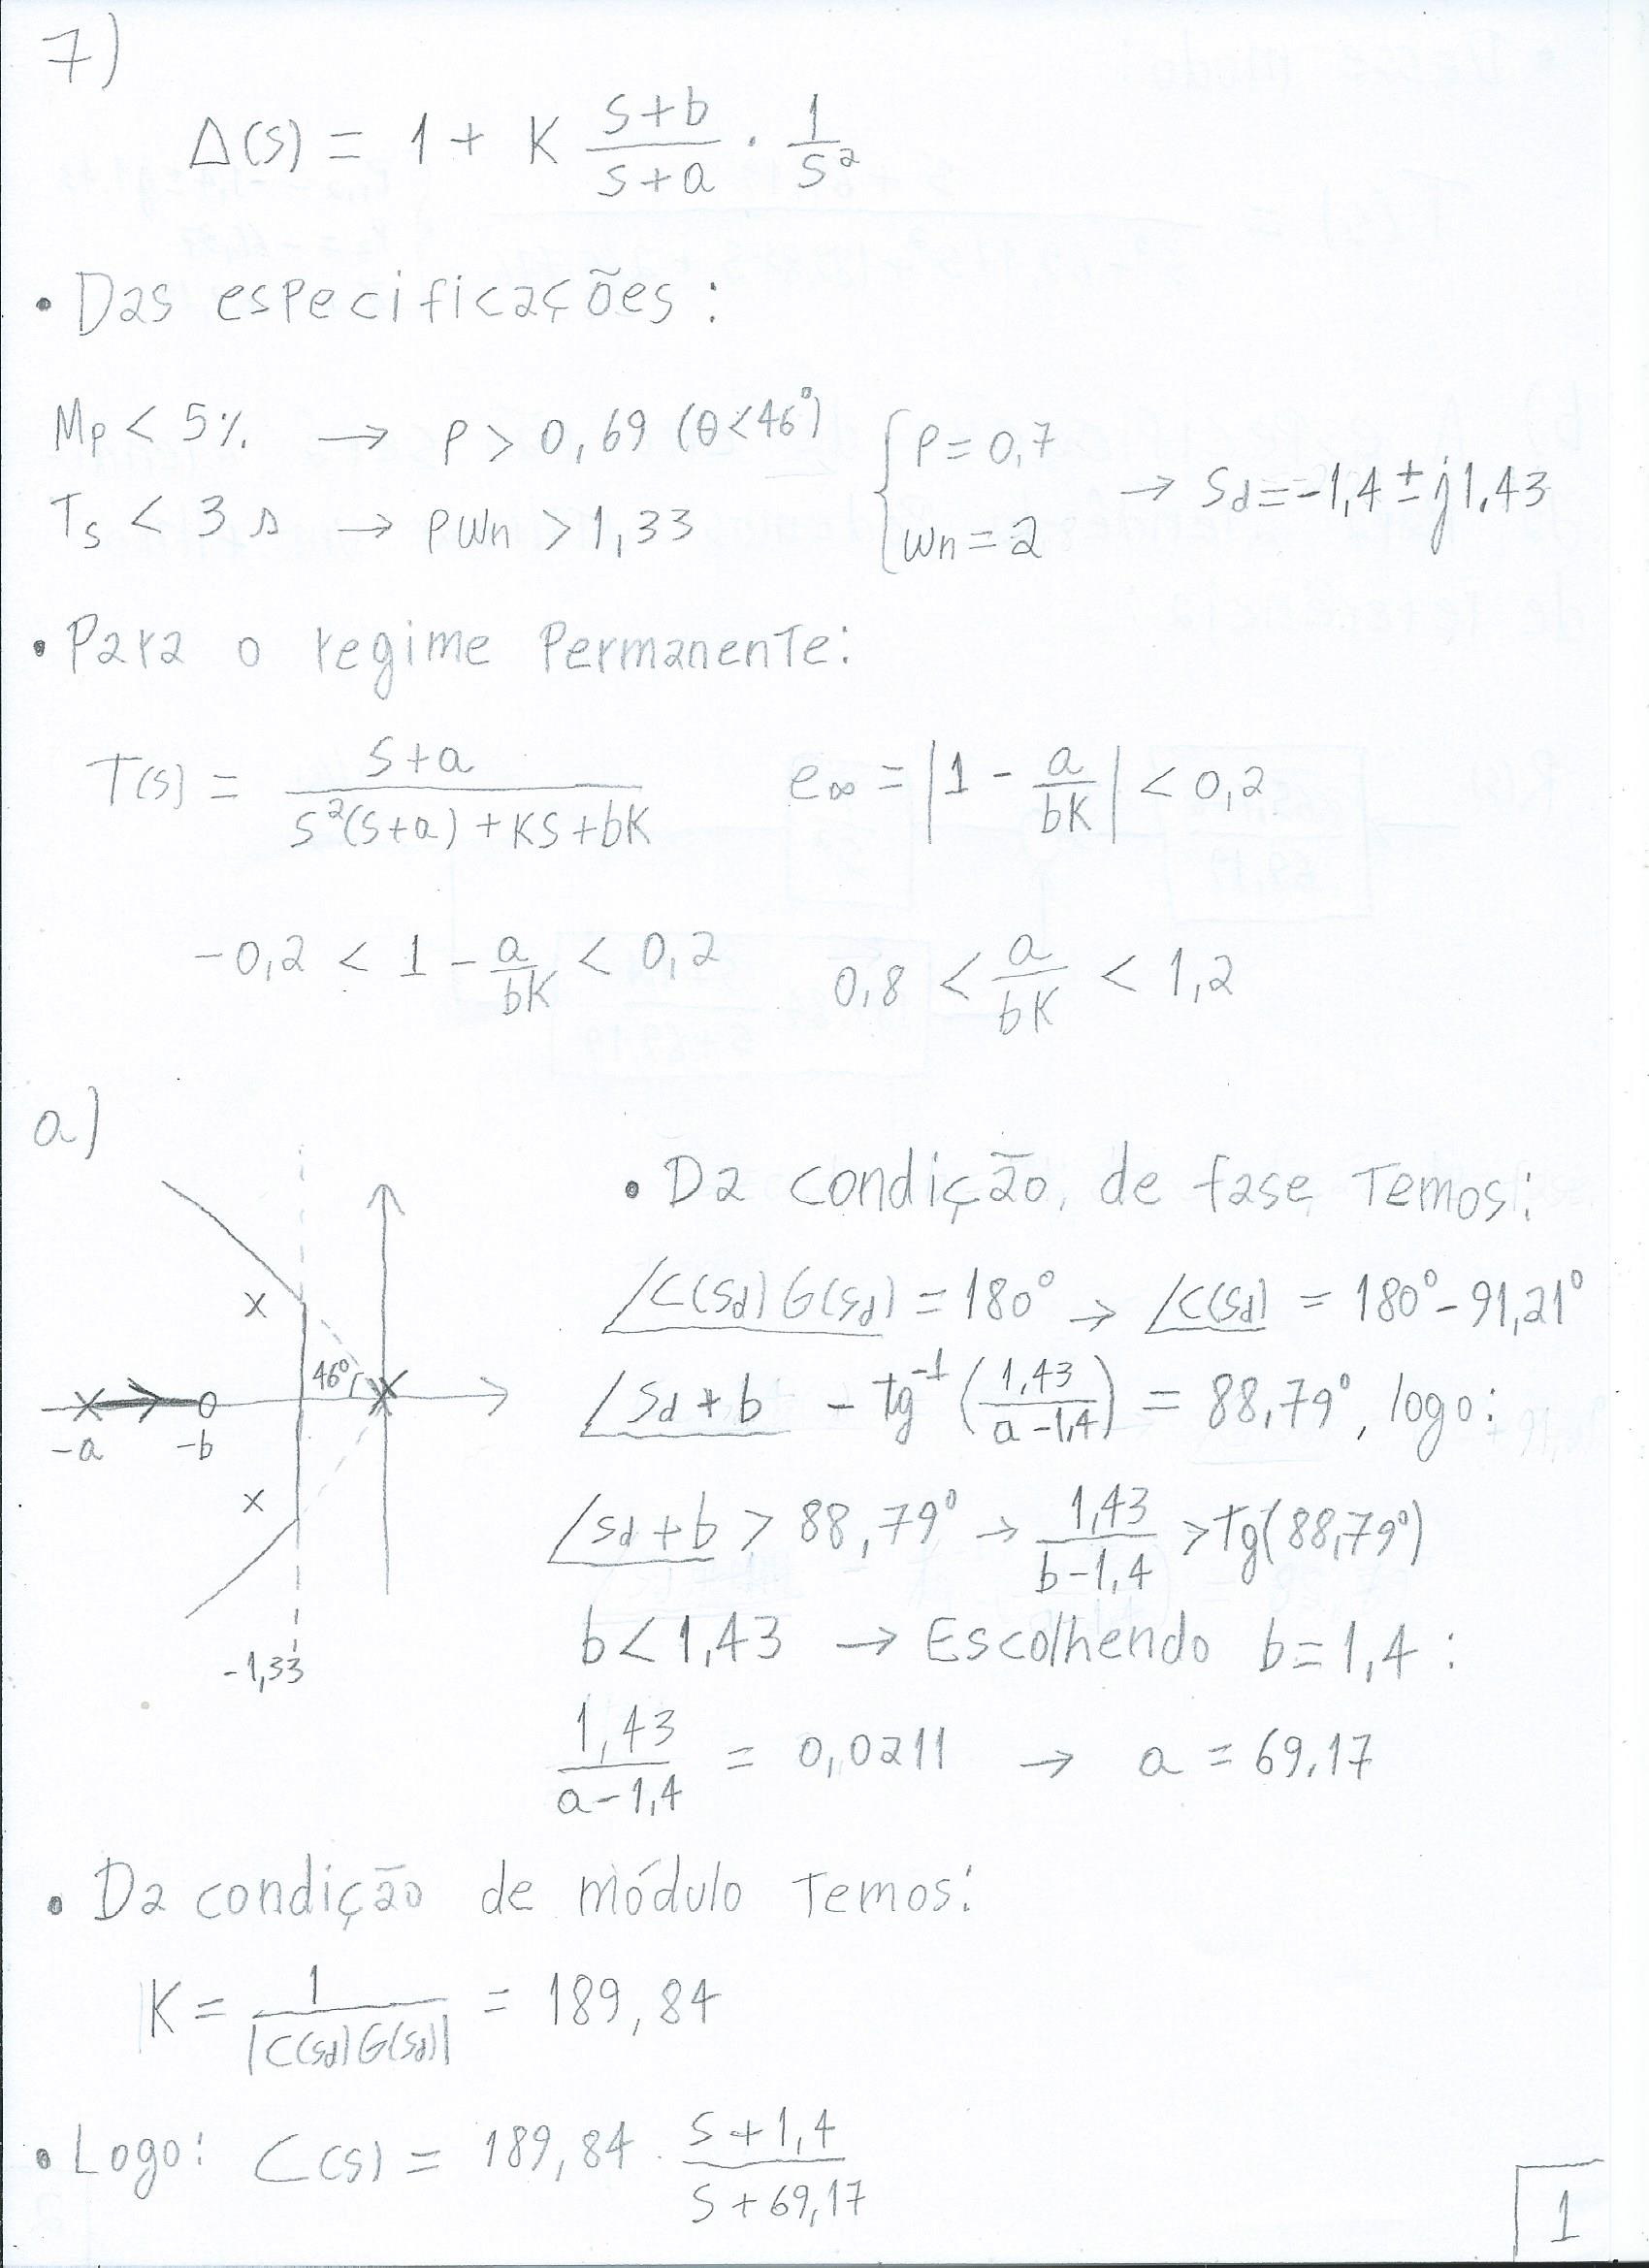 7)
Δ(s) = 1 + K (s+b)/(s+a) · 1/s²
• Das especificações:
Mp < 5% → ρ > 0,69 (θ<46°) { ρ = 0,7
Ts < 3 s → ρWn > 1,33 { Wn = 2 → Sd = -1,4 ± j1,43
• Para o regime Permanente:
T(s) = (s+a)/(s²(s+a) + KS + bK) e∞ = |1 - a/(bK)| < 0,2
-0,2 < 1 - a/(bK) < 0,2 0,8 < a/(bK) < 1,2
a)
• Da condição de fase Temos:
∠C(sd)G(sd) = 180° → ∠C(sd) = 180° - 91,21°
∠Sd+b - tg⁻¹(1,43/(a-1,4)) = 88,79°, logo:
∠sd+b > 88,79° → 1,43/(b-1,4) > Tg(88,79°)
b < 1,43 → Escolhendo b = 1,4 :
1,43/(a-1,4) = 0,0211 → a = 69,17
46°
-a
-b
-1,33
• Da condição de módulo Temos:
K = 1/|C(sd)G(sd)| = 189,84
• Logo: C(s) = 189,84 · (s+1,4)/(s+69,17)
1